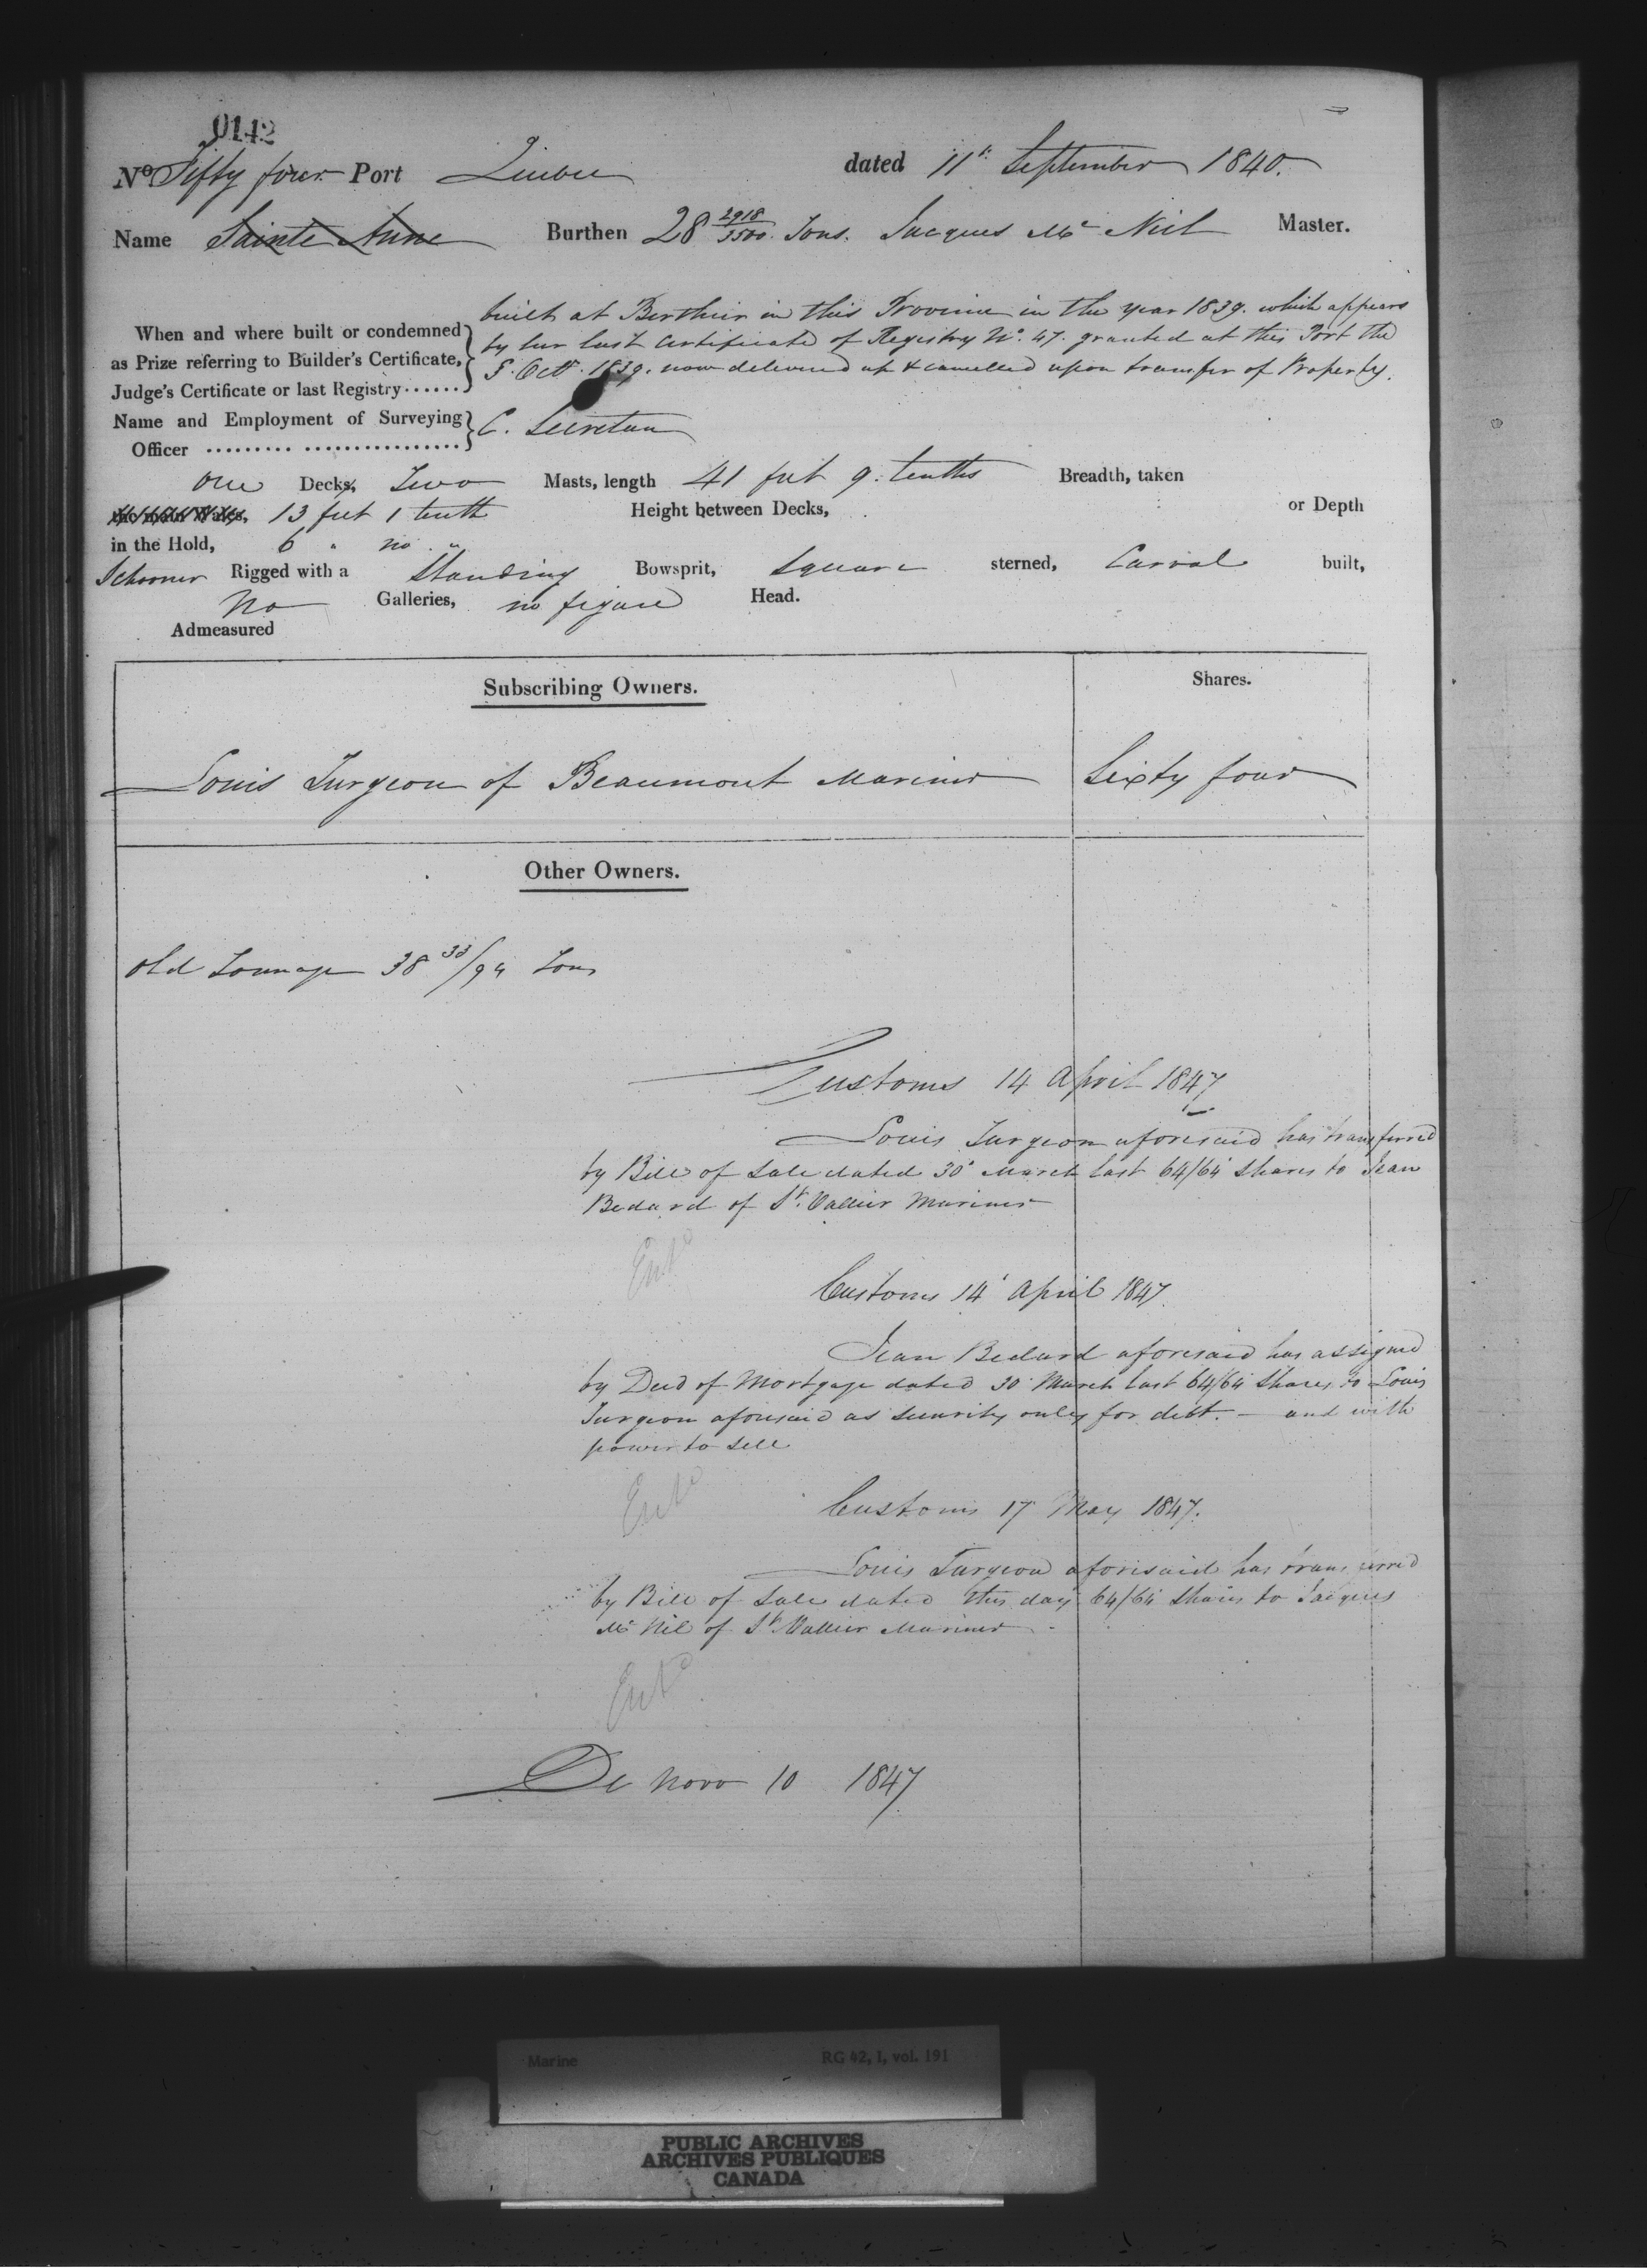 0142
No Fifty four Port Quebec dated 11th September 1840.
Name Sainte Anne Burthen 28 2918/3500 Tons. Jacques Mc Nil Master.
built at Berthier in this Province in the year 1839. which appears
When and where built or condemned
by her last Certificate of Registry No. 47. granted at this Port the
as Prize referring to Builder's Certificate,
5. Octr. 1839. now delivered up & cancelled upon transfer of Property.
Judge's Certificate or last Registry......
Name and Employment of Surveying
C. Secretan
Officer ......... ................
One Decks, Two Masts, length 41 feet 9. tenths Breadth, taken
the main Wales, 13 feet 1 tenth Height between Decks, or Depth
in the Hold, 6 " no "
Schooner Rigged with a Standing Bowsprit, Square sterned, Carvel built,
No Galleries, no figure Head.
Admeasured
Subscribing Owners. Shares.
Louis Turgeon of Beaumont Mariner Sixty four
Other Owners.
Old Tonnage 38 33/94 Tons
Customs 14 April 1847
Louis Turgeon aforesaid has transferred
by Bill of Sale dated 30' March last 64/64 Shares to Jean
Bedard of St. Vallier Mariner
Entd
Customs 14' April 1847.
Jean Bedard aforesaid has assigned
by Deed of Mortgage dated 30' March last 64/64 Shares to Louis
Turgeon aforesaid as security only for debt. — and with
power to sell
Entd
Customs 17 May 1847.
Louis Turgeon aforesaid has transferred
by Bill of Sale dated this day 64/64 Shares to Jacques
Mc Nil of St. Vallier Mariner
Entd
De Novo 10 1847
Marine RG 42, I, vol. 191
PUBLIC ARCHIVES
ARCHIVES PUBLIQUES
CANADA